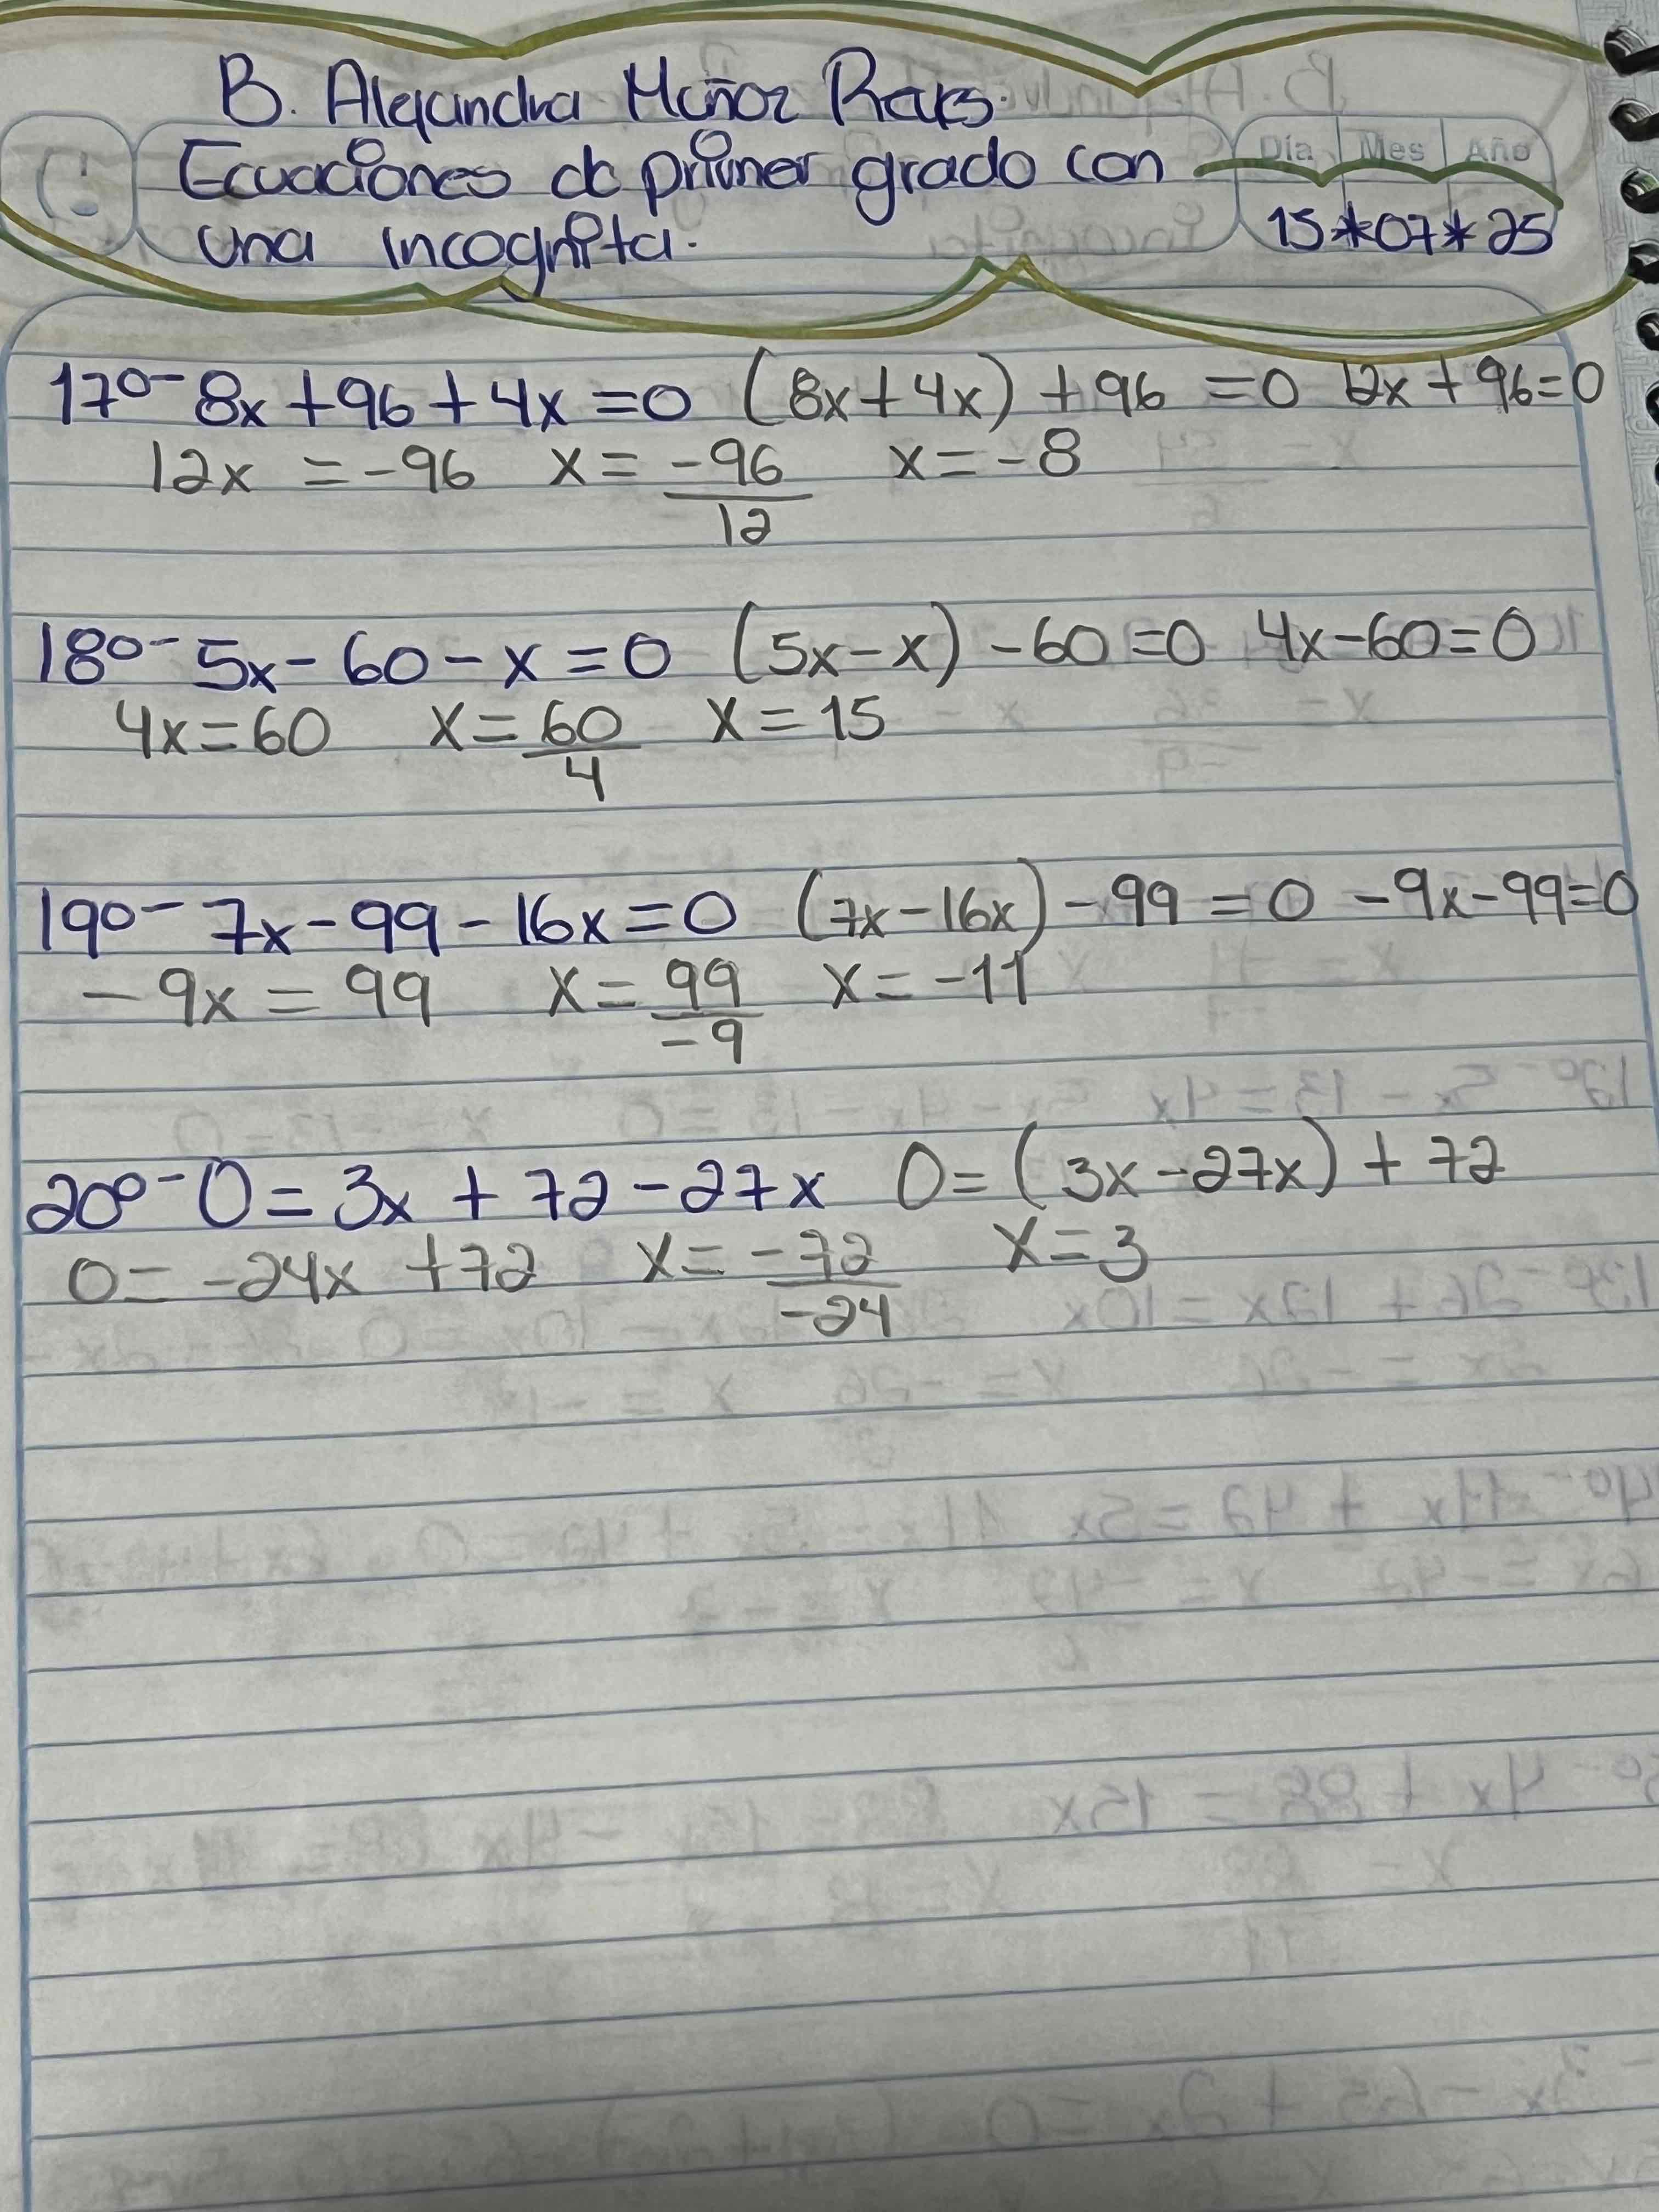 B. Alejandra Muñoz
Ecuaciones de primer grado con
una incognita.
Día Mes Año
15*07*25
17º- 8x + 96 + 4x = 0 (8x + 4x) + 96 = 0 12x + 96 = 0
12x = -96 x = -96/12 x = -8
18º- 5x - 60 - x = 0 (5x - x) - 60 = 0 4x - 60 = 0
4x = 60 x = 60/4 x = 15
19º- 7x - 99 - 16x = 0 (7x - 16x) - 99 = 0 -9x - 99 = 0
-9x = 99 x = 99/-9 x = -11
20º- 0 = 3x + 72 - 27x 0 = (3x - 27x) + 72
0 = -24x + 72 x = -72/-24 x = 3